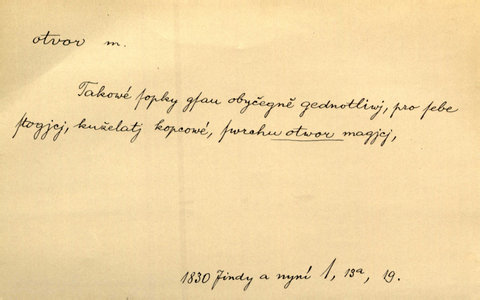 otvor m.
Takowé sopky gsau obyčegně gednotliwj, pro sebe
stogjcj, kuželatj kopcowé, swrchu otwor magjcj,
1830 Jindy a nyní 1, 13a, 19.